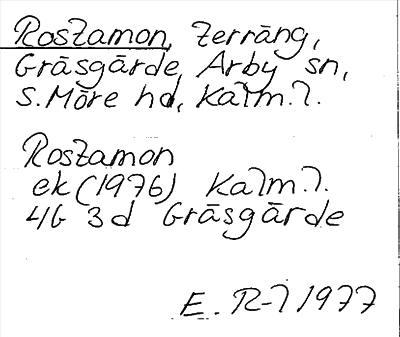 Rostamon, terräng,
Gräsgärde, Arby sn,
S. Möre hd, Kalm. l.
Rostamon
ek (1976) Kalm. l.
4G 3d Gräsgärde
E. R-l 1977